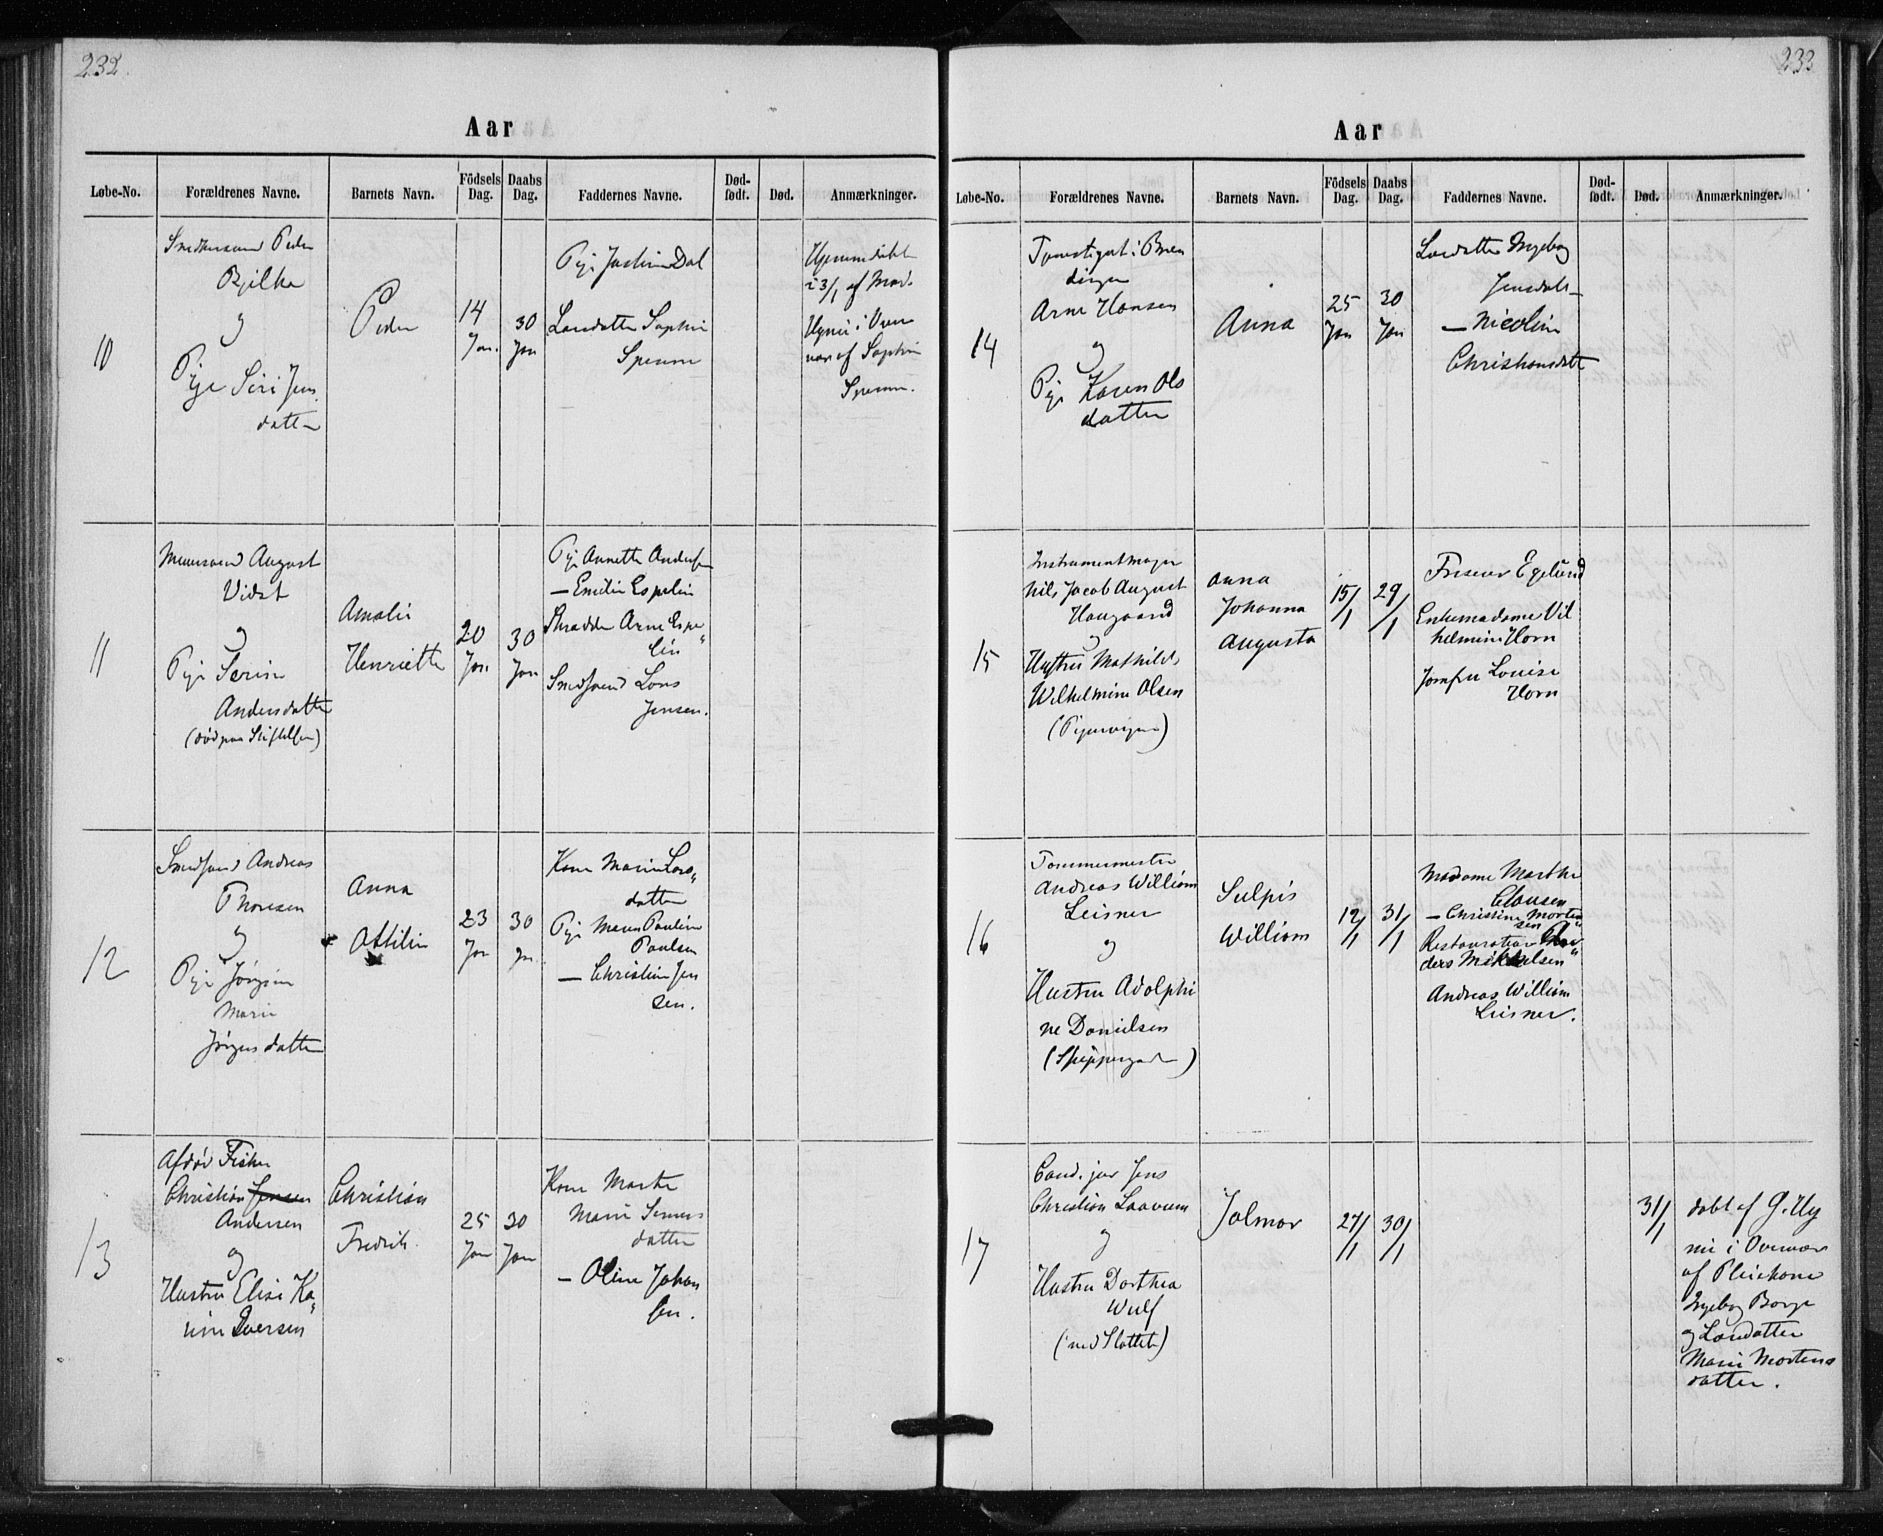 232.
Aar
Løbe-No. Forældrenes Navne. Barnets Navn. Födsels Dag. Daabs Dag. Faddernes Navne. Død-født. Død. Anmærkninger.
10
Peder
og
Pige Siri Jens
datter
Peder
14
Jan.
30
Jan
Pige
Dal
Sophie
i 3/1 af Mad.
af Sophie
11
August
Vidst
og
Pige Serine
Andersdatter
(død paa Stiftelsen)
Amalie
Henriette
20
Jan
30
Jan
Pige Annette Andersen
— Emilie Espelin
Arne Espe„
lin
Lars
Jensen.
12
Andreas
Thoresen
og
Pige Jørgine
Marie
Jørgensdatter
Anna
Ottilie
23
Jan
30
Jan
Kone Marie Lars„
datter
Pige Maren Pauline
Paulsen
— Christine Jen
sen.
13
Afdød Fisker
Christian Jensen
Andersen
og
Hustru Elise Ka„
rine Iversen
Christian
Fredrik
25
Jan
30
Jan
Kone Marthe
Marie
datter
— Oline Johan
sen.
233
Aar
Løbe-No. Forældrenes Navne. Barnets Navn. Födsels Dag. Daabs Dag. Faddernes Navne. Død-født. Død. Anmærkninger.
14
Arne Hansen
og
Pige Karen Ols
datter
Anna
25
Jan
30
Jan
Ingeborg
Jensdatr
— Nicoline
Christiansdatter
15
Instrumentmager
Nils Jacob August
Haugaard
og
Hustru Mathilde
Wilhelmine Olsen
Anna
Johanna
Augusta
15/1
29/1
Friseur Egelund
Enkemadame Vil
helmine Horn
Jomfru Louise
Horn
16
Tømmermester
Andreas William
Leisner
og
Hustru Adolphi
ne Danielsen
(Skippergaden)
Sulpis
William
12/1
31/1
Madame Marthe
Clausen
— Christine Morten„
sen
Restauratior An„
ders Mikkelsen
Andreas William
Leisner.
17
Cand. jur Jens
Christian
og
Hustru Dorthea
Wulf
(ved Slottet)
Jalmar
27/1
30/1
31/1
døbt af G.
i Overvær
af Pleiekone
Ingeborg Borge
og
Marie Mortens
datter.